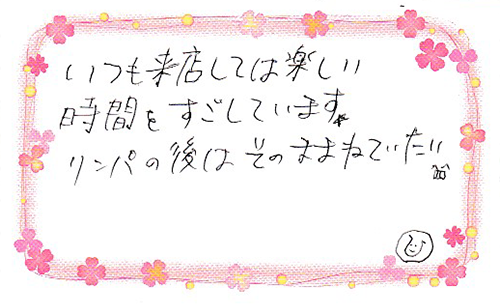 いつも来店しては楽しい
時間をすごしています。
リンパの後はそのままねていたい